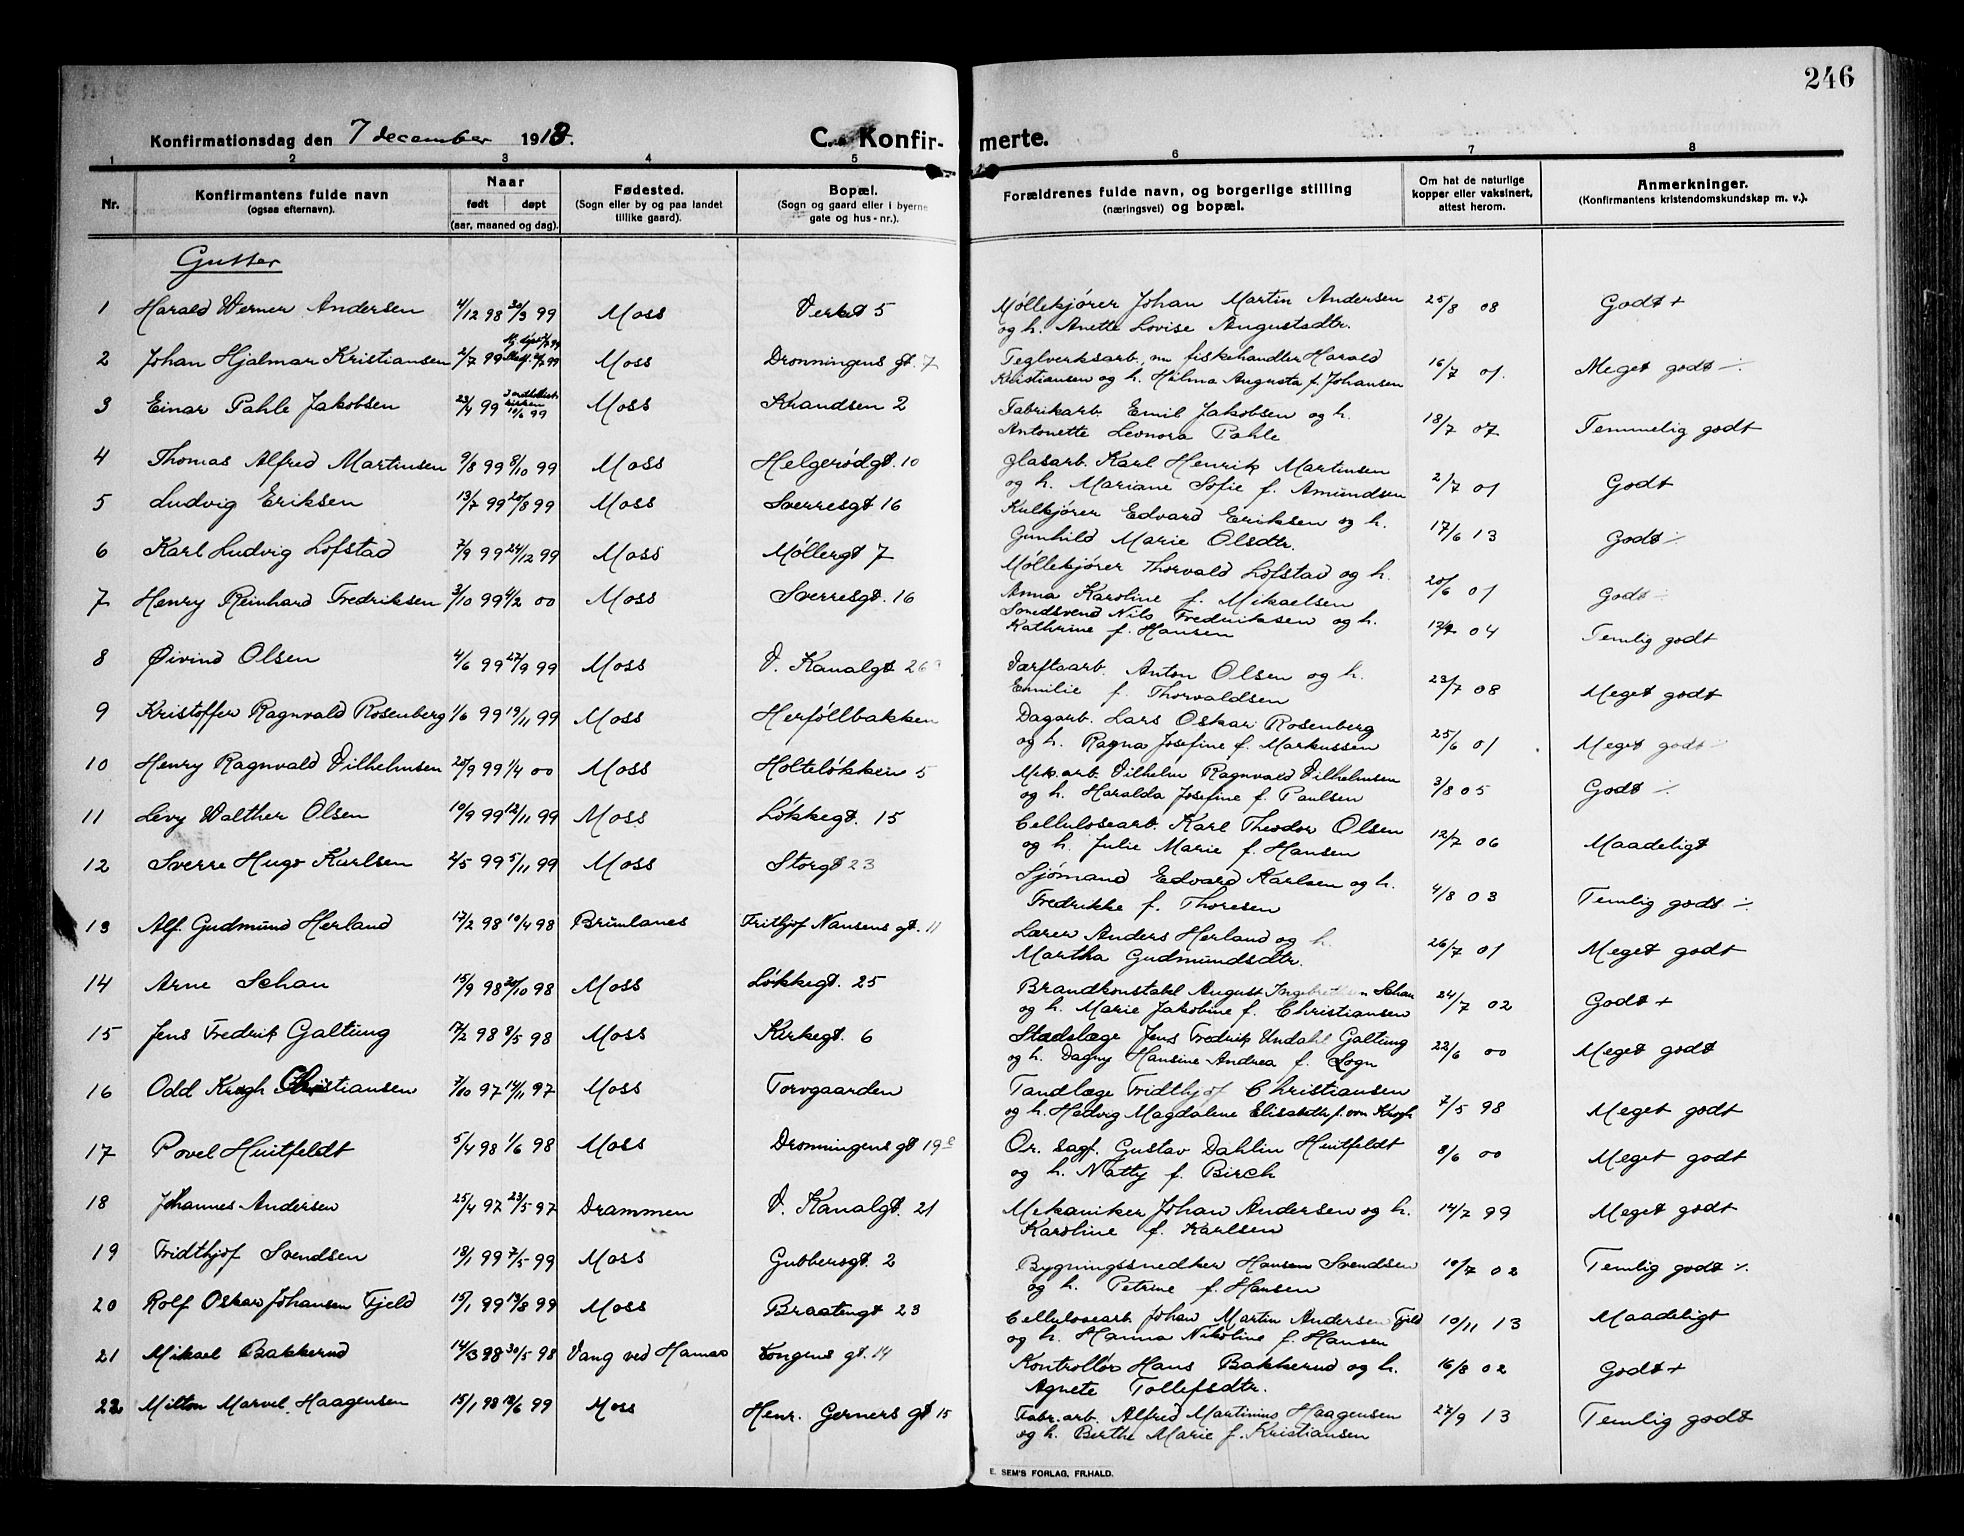 246
Konfirmationsdag den 7 december 1913.
C. Konfirmerte.
1 2 3 4 5 6 7 8
Nr.
Konfirmantens fulde navn
(ogsaa efternavn).
Naar
født døpt
(aar, maaned og dag).
Fødested.
(Sogn eller by og paa landet
tillike gaard).
Bopæl.
(Sogn og gaard eller i byerne
gate og hus-nr.).
Forældrenes fulde navn, og borgerlige stilling
(næringsvei) og bopæl.
Om hat de naturlige
kopper eller vaksinert,
attest herom.
Anmerkninger.
(Konfirmantens kristendomskundskap m. v.).
Gutter
1 Harald Werner Andersen 4/12 98 30/3 99 Moss Verket 5 Møllekjører Johan Martin Andersen 25/8 08 Godt +
og h. Anette Lovise Augustadtr.
2 Johan Hjalmar Kristiansen 2/7 99 Moss Dronningens gt. 7 Teglverksarb., nu fiskehandler Harald 16/7 01. Meget godt ÷
Kristiansen og h. Hilma Augusta f. Johansen
3 Einar Pahle Jakobsen 23/4 99 10/6 99 Moss Krandsen 2 Fabrikarb. Emil Jakobsen og h. 18/7 07 Temmelig godt
Antonette Leonora Pahle
4 Thomas Alfred Martinsen 9/8 99 8/10 99 Moss Helgerødgt. 10 Glasarb. Karl Henrik Martinsen 2/7 01 Godt
og h. Mariane Sofie f. Amundsen
5 Ludvig Eriksen 13/7 99 20/8 99 Moss Sverresgt 16 Kulkjører Edvard Eriksen og h. 17/6 13 Godt ÷
Gunhild Marie Olsdtr.
6 Karl Ludvig Løfstad 7/9 99 24/12 99 Moss Møllergt 7 Møllekjører Thorvald Løfstad og h. 20/6 01 Godt ÷
Anna Karoline f. Mikaelsen
7 Henry Reinhard Fredriksen 3/10 99 4/2 00 Moss Sverresgt. 16 Smedsvend Nils Fredriksen og h. 04 Temlig godt
Kathrine f. Hansen
8 Øivind Olsen 4/6 99 27/9 99 Moss V. Kanalgt 26 Værftsarb. Anton Olsen og h. 23/7 08 Meget godt
Emilie f. Thorvaldsen
9 Kristoffer Ragnvald Rosenberg 1/6 99 19/11 99 Moss Herføllbakken Dagarb. Lars Oskar Rosenberg 25/6 01 Meget godt ÷
og h. Ragna Josefine f. Markussen
10 Henry Ragnvald Vilhelmsen 20/9 99 1/4 00 Moss Holteløkken 5 Mek.arb. Vilhelm Ragnvald Vilhelmsen 3/8 05 Godt ÷
og h. Haralda Josefine f. Paulsen
11 Levy Walther Olsen 10/9 99 12/11 99 Moss Løkkegt. 15 Cellulosearb. Karl Theodor Olsen 12/7 06 Maadeligt
og h. Julie Marie f. Hansen
12 Sverre Hugo Karlsen 2/5 99 5/11 99 Moss Storgt 23 Sjømand Edvard Karlsen og h. 4/8 03 Temlig godt ÷
Fredrikke f. Thoresen
13 Alf Gudmund Herland 17/2 98 10/4 98 Brunlanes Frithjof Nansens gt. 11 Lærer Anders Herland og h. 26/7 01 Meget godt
Martha Gudmundsdtr.
14 Arne Schau 15/9 98 30/10 98 Moss Løkkegt. 25 Brandkonstabl August Ingebretsen Schau 24/7 02 Godt +
og h. Marie Jakobine f. Christiansen
15 Jens Fredrik Galtung 17/2 98 8/5 98 Moss Kirkegt. 6 Stadslæge Jens Fredrik Undahl Galtung 22/6 00 Meget godt
og h. Dagny Hansine Andrea f. Sogn
16 Odd Krogh Christiansen 7/10 97 14/11 97 Moss Torvgaarden Tandlæge Fridthjof Christiansen 7/5 98 Meget godt
og h. Hedvig Magdalene Elisabeth f. von Krogh
17 Povel Huitfeldt 5/4 98 1/6 98 Moss Dronningens gt 19 Or. sagf. Gustav Dahlin Huitfeldt 8/6 00 Meget godt
og h. Natty f. Birch
18 Johannes Andersen 25/4 97 23/5 97 Drammen V. Kanalgt. 21 Mekaniker Johan Andersen og h. 14/7 99 Meget godt
Karoline f. Karlsen
19 Fridthjof Svendsen 18/1 99 7/5 99 Moss Gubberogt 2 Bygningssnedker Hansen Svendsen 10/7 02 Temlig godt ÷
og h. Petrine f. Hansen
20 Rolf Oskar Johansen Fjeld 15/1 99 13/8 99 Moss Braatengt 23 Cellulosearb. Johan Martin Andersen Fjeld 10/11 13 Maadeligt
og h. Hanna Nikoline f. Hansen
21 Mikael Bakkerud 14/3 98 30/5 98 Vang ved Hamar Kongens gt. 14 Kontrollør Hans Bakkerud og h. 16/8 02 Godt +
Agnete Tollefsdtr.
22 Milton Marvel Haagensen 15/1 98 18/6 99 Moss Henr. Gerners gt 15 Fabr.arb. Alfred Martinius Haagensen 27/9 13 Temlig godt
og h. Berthe Marie f. Kristiansen
E. SEM'S FORLAG, FR.HALD.